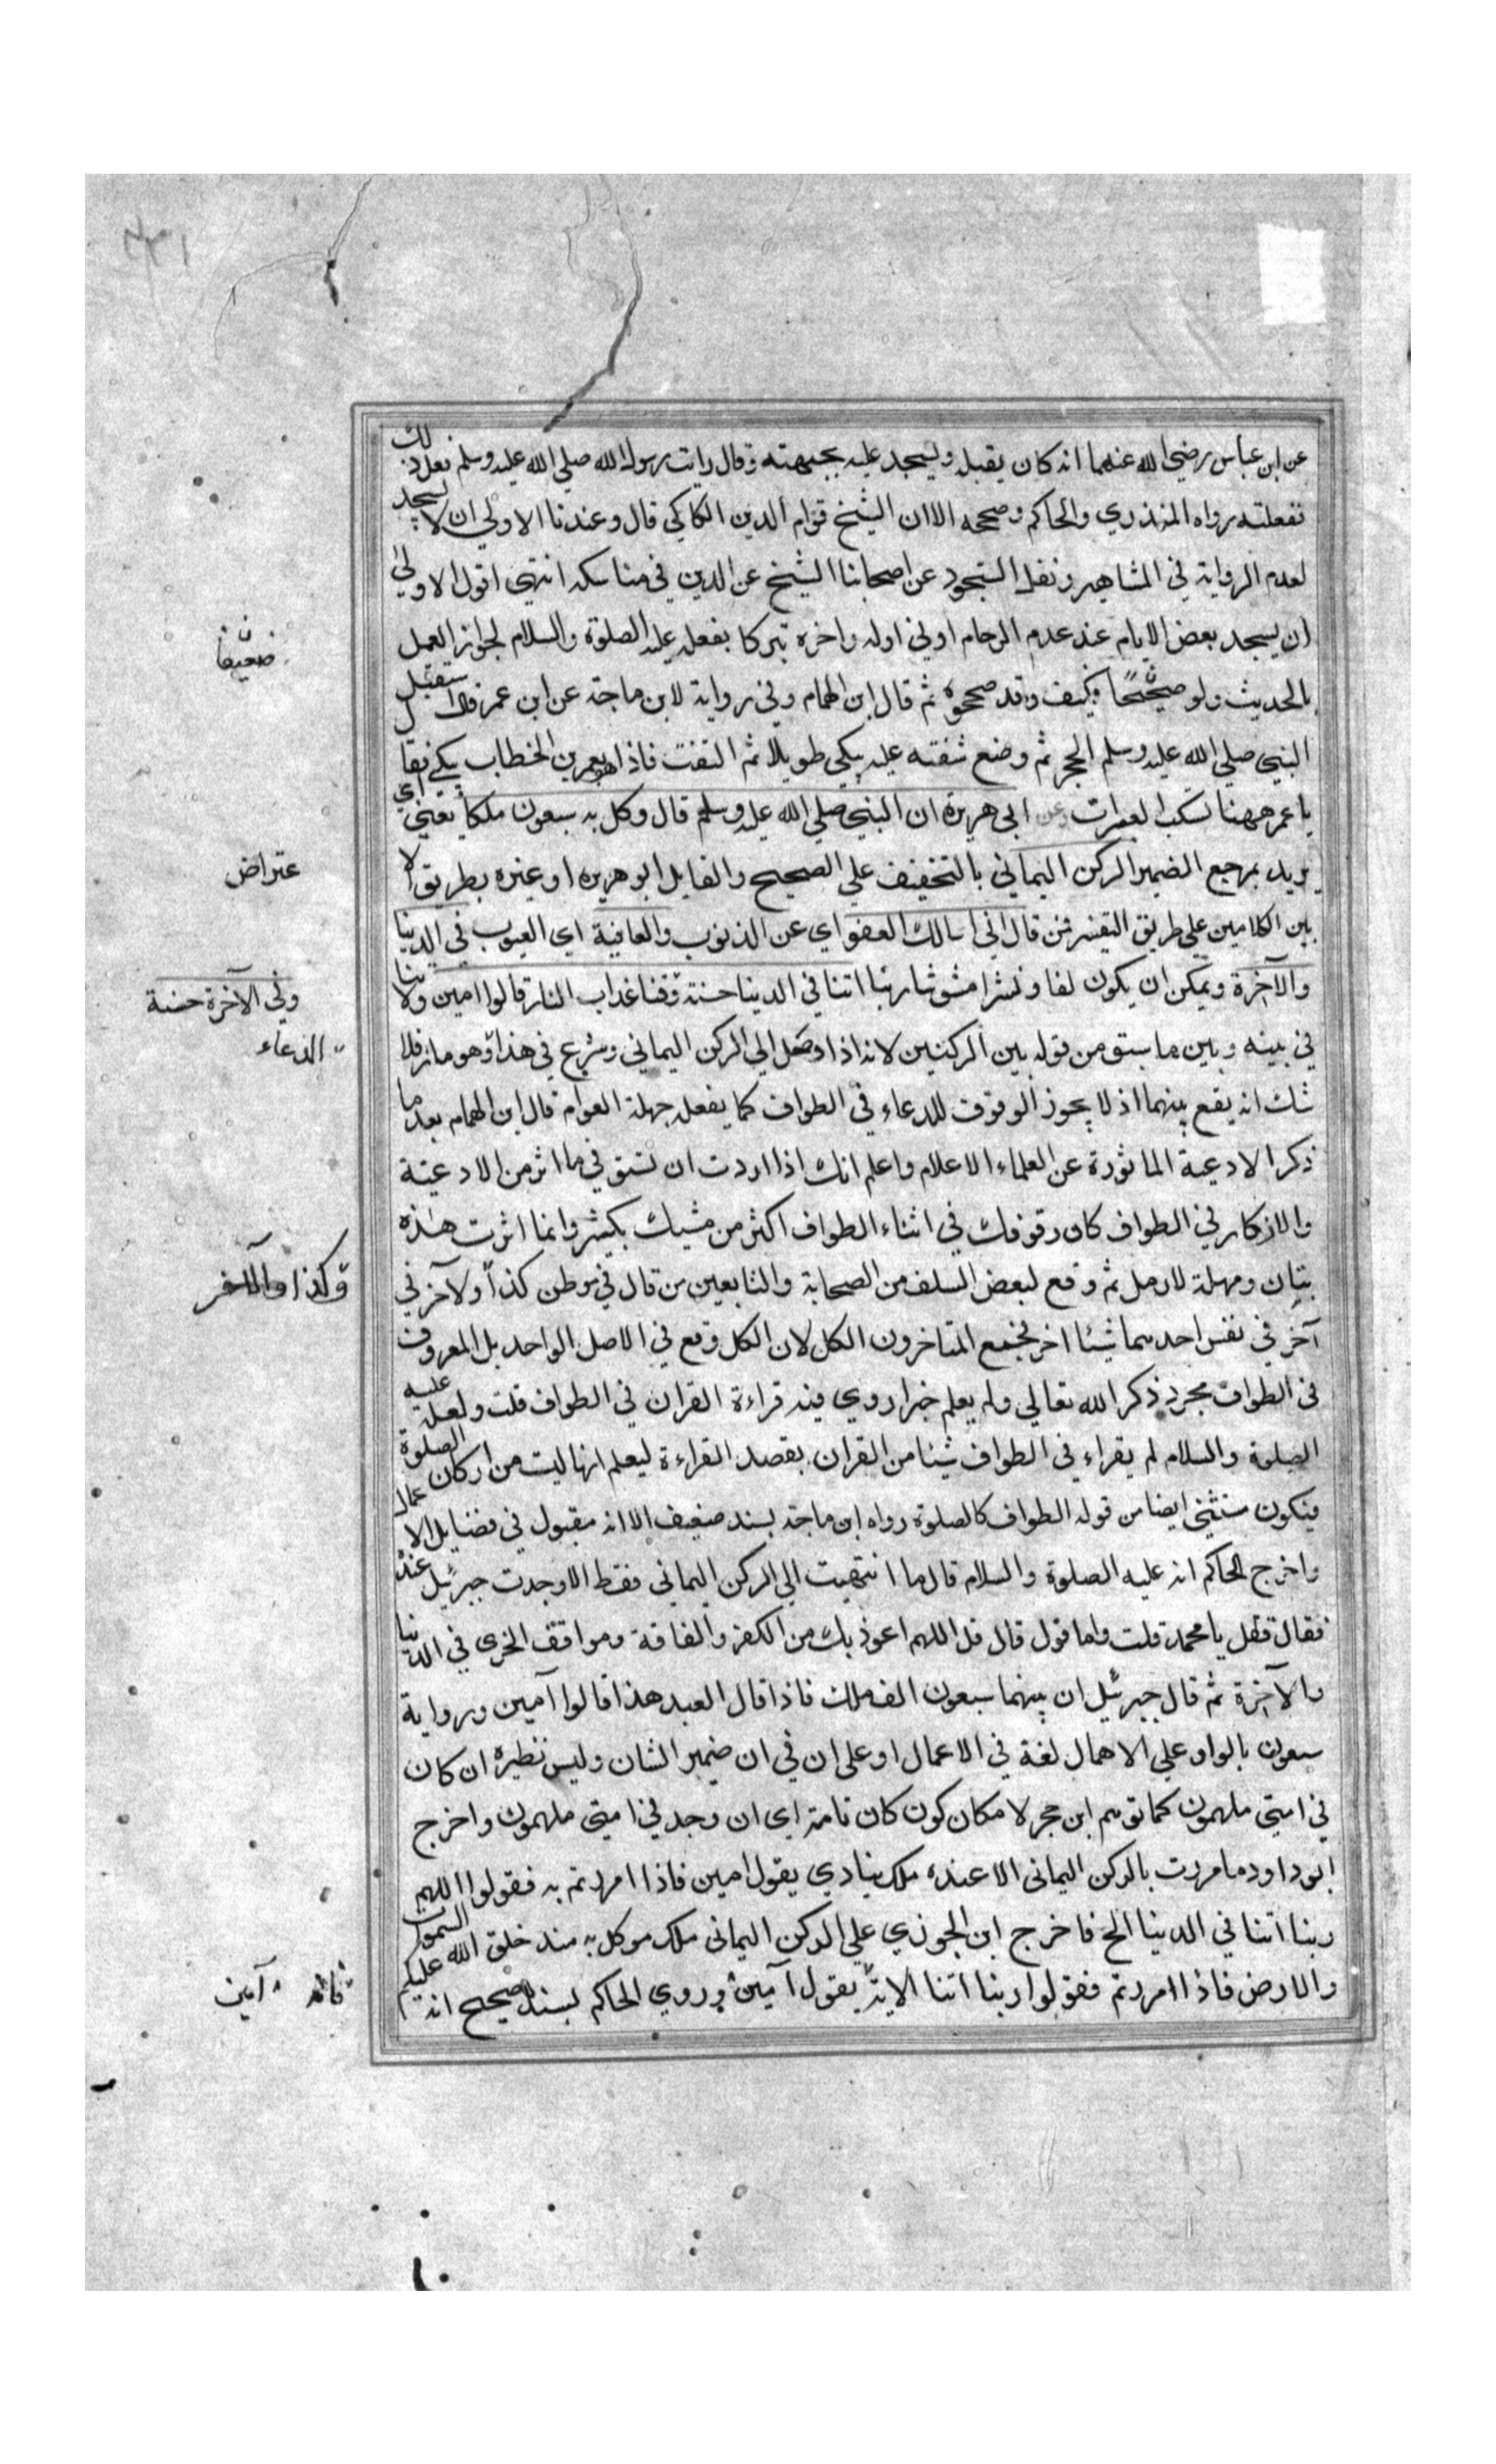 عن ابن عباس رضي الله عنهما انه كان يقبله ويسجد عليه بجبهته وقال رايت رسول الله صلي الله عليه وسلم يفعل ذلك
ففعلته رواه المنذري والحاكم وصححه الا ان الشيخ قوام الدين الكاكي قال وعندنا الاولي ان لا يسجد
لعدم الرواية في المشاهير ونقل السجود عن اصحابنا الشيخ عز الدين في مناسكه انتهي اقول الاولي
ان يسجد بعض الايام عند عدم الزحام او في اوله واخره تبركا بفعله عليه الصلوة والسلام لجواز العمل
ضعيفا
بالحديث ولو صحيحًا فكيف وقد صححوه ثم قال ابن الهمام وفي رواية لابن ماجة عن ابن عمر قال استقبل
النبي صلي الله عليه وسلم الحجر ثم وضع شفته عليه يبكي طويلا ثم التفت فاذا هو بعمر بن الخطاب يبكي فقال
يا عمر ههنا تسكب العبرات وعن ابي هريرة ان النبي صلي الله عليه وسلم قال وكل به سبعون ملكا يعني اي
يريد بمرجع الضمير الركن اليماني بالتخفيف علي الصحيح والقايل ابو هريره او غيره بطريق الا
عتراض
بين الكلامين علي طريق التفسير فمن قال اني اسالك العفو اي عن الذنوب والعافية اي العيوب في الدنيا
والآخرة ويمكن ان يكون لفا ونشرا مشوشا ربنا اتنا في الدنيا حسنة وقنا عذاب النار قالوا امين ولا تنا
وفي الآخرة حسنة
في بينه وبين ما سبق من قوله بين الركنين لانه اذا وصل الي الركن اليماني وشرع في هذا وهو مار فلا
الدعاء
شك انه يقع بينهما اذ لا يجوز الوقوف للدعاء في الطواف كما يفعله جهلة العوام قال ابن الهمام بعد ما
ذكر الادعية الماثورة عن العلماء الاعلام واعلم انك اذا اردت ان تستوفي ما اثر من الادعية
والاذكار في الطواف كان وقوفك في اثناء الطواف اكثر من مشيك بكثير وانما اثرت هذه
بتان ومهلة لا رمل ثم وقع لبعض السلف من الصحابة والتابعين من قال في موطن كذا ولآخر في
وكذا والآخر
آخر في نفس احدهما شيئا اخر فجمع المتاخرون الكل لان الكل وقع في الاصل الواحد بل المعروف
في الطواف مجرد ذكر الله تعالي ولم يعلم خبرا روي فيه قراءة القران في الطواف قلت ولعله عليه
الصلوة والسلام لم يقراء في الطواف شيئا من القران بقصد القراءة ليعلم انها ليست من اركان الصلوة
فيكون مستثني ايضا من قوله الطواف كالصلوة رواه ابن ماجة بسند ضعيف الا انه مقبول في فضايل الاعمال
واخرج الحاكم انه عليه الصلوة والسلام قال ما انتهيت الي الركن اليماني فقط الا وجدت جبرئيل عنده
فقال قل يا محمد قلت وما اقول قال قل اللهم اعوذ بك من الكفر والفاقة ومواقف الخزي في الدنيا
والآخرة ثم قال جبرئيل ان بينهما سبعون الف ملك فاذا قال العبد هذا قالوا آمين ورواية
سبعون بالواو علي الاهمال لغة في الاعمال او علي ان في ان ضمير الشان وليس نظيره ان كان
في امتي ملهمون كما توهم ابن حجر لامكان كون كان تامة اي ان وجد في امتي ملهمون واخرج
ابو داود ما مررت بالركن اليماني الا عنده ملك ينادي يقول امين فاذا امررتم به فقولوا اللهم
ربنا اتنا في الدنيا الخ فاخرج ابن الجوزي علي الركن اليماني ملك موكل به منذ خلق الله السموات
والارض فاذا امررتم فقولوا ربنا اتنا الاية يقول آمين وروي الحاكم بسند صحيح انه عليكم
فانه آمين